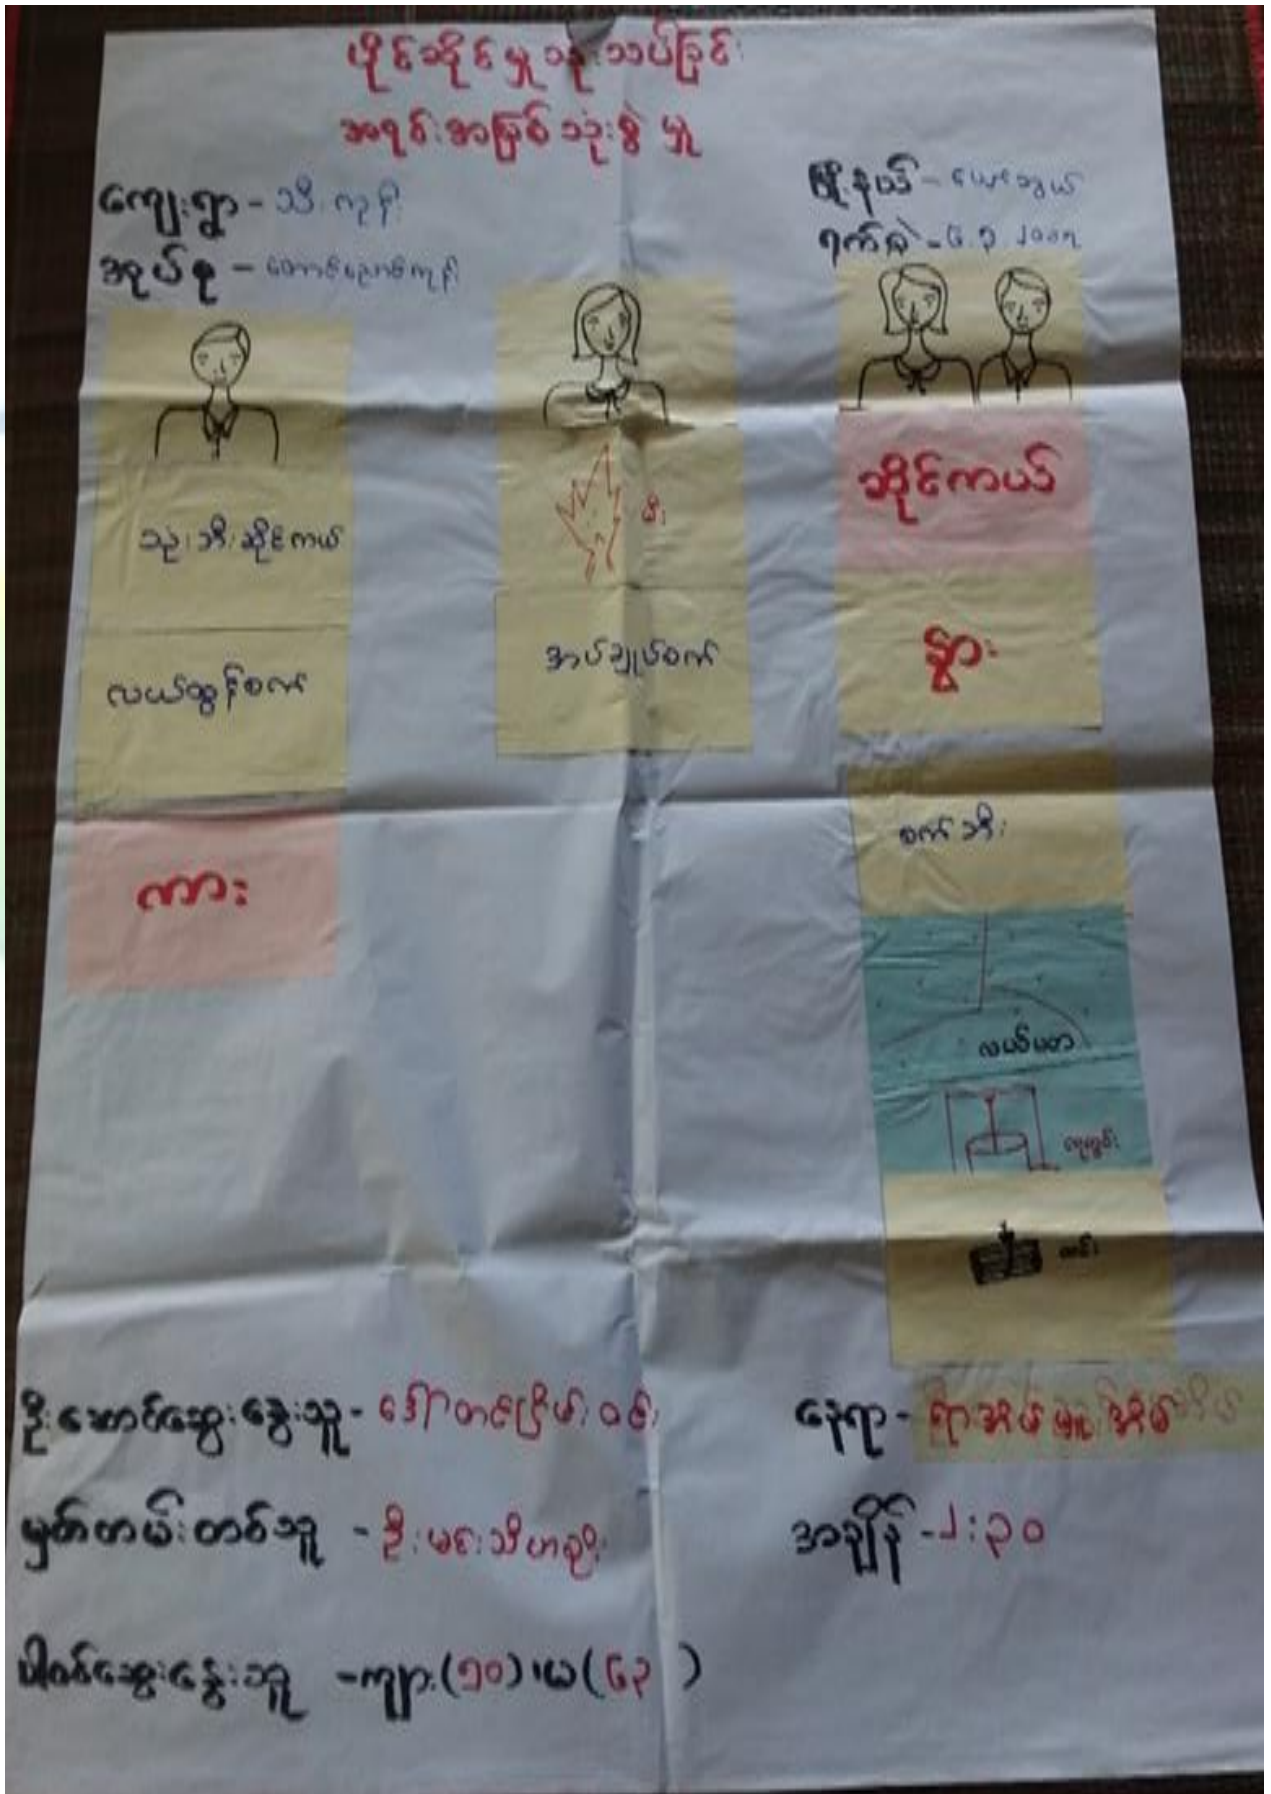 ပိုင်ဆိုင်မှု သုံးသပ်ခြင်း
အရင်းအမြစ် သုံးစွဲ မှု
ကျေးရွာ - သီးကုန်း
အုပ်စု - တောင်ညောင်ကုန်း
မြို့နယ် -
ရက်စွဲ - ၆.၃.၂၀၁၇
သုံးဘီးဆိုင်ကယ်
လယ်ထွန်စက်
ကား
မီး
အပ်ချုပ်စက်
ဆိုင်ကယ်
နွား
စက်ဘီး
လယ်ယာ
ရေတွင်း
ထင်း
ဦးဆောင်ဆွေးနွေးသူ - ဒေါ်တင်ငြိမ်းဝင်း
မှတ်တမ်းတင်သူ - ဦးမင်းသီဟ
ပါဝင်ဆွေးနွေးသူ - ကျား (၅၀) ၊ မ (၆၃)
နေရာ -
အချိန် - ၂:၃၀